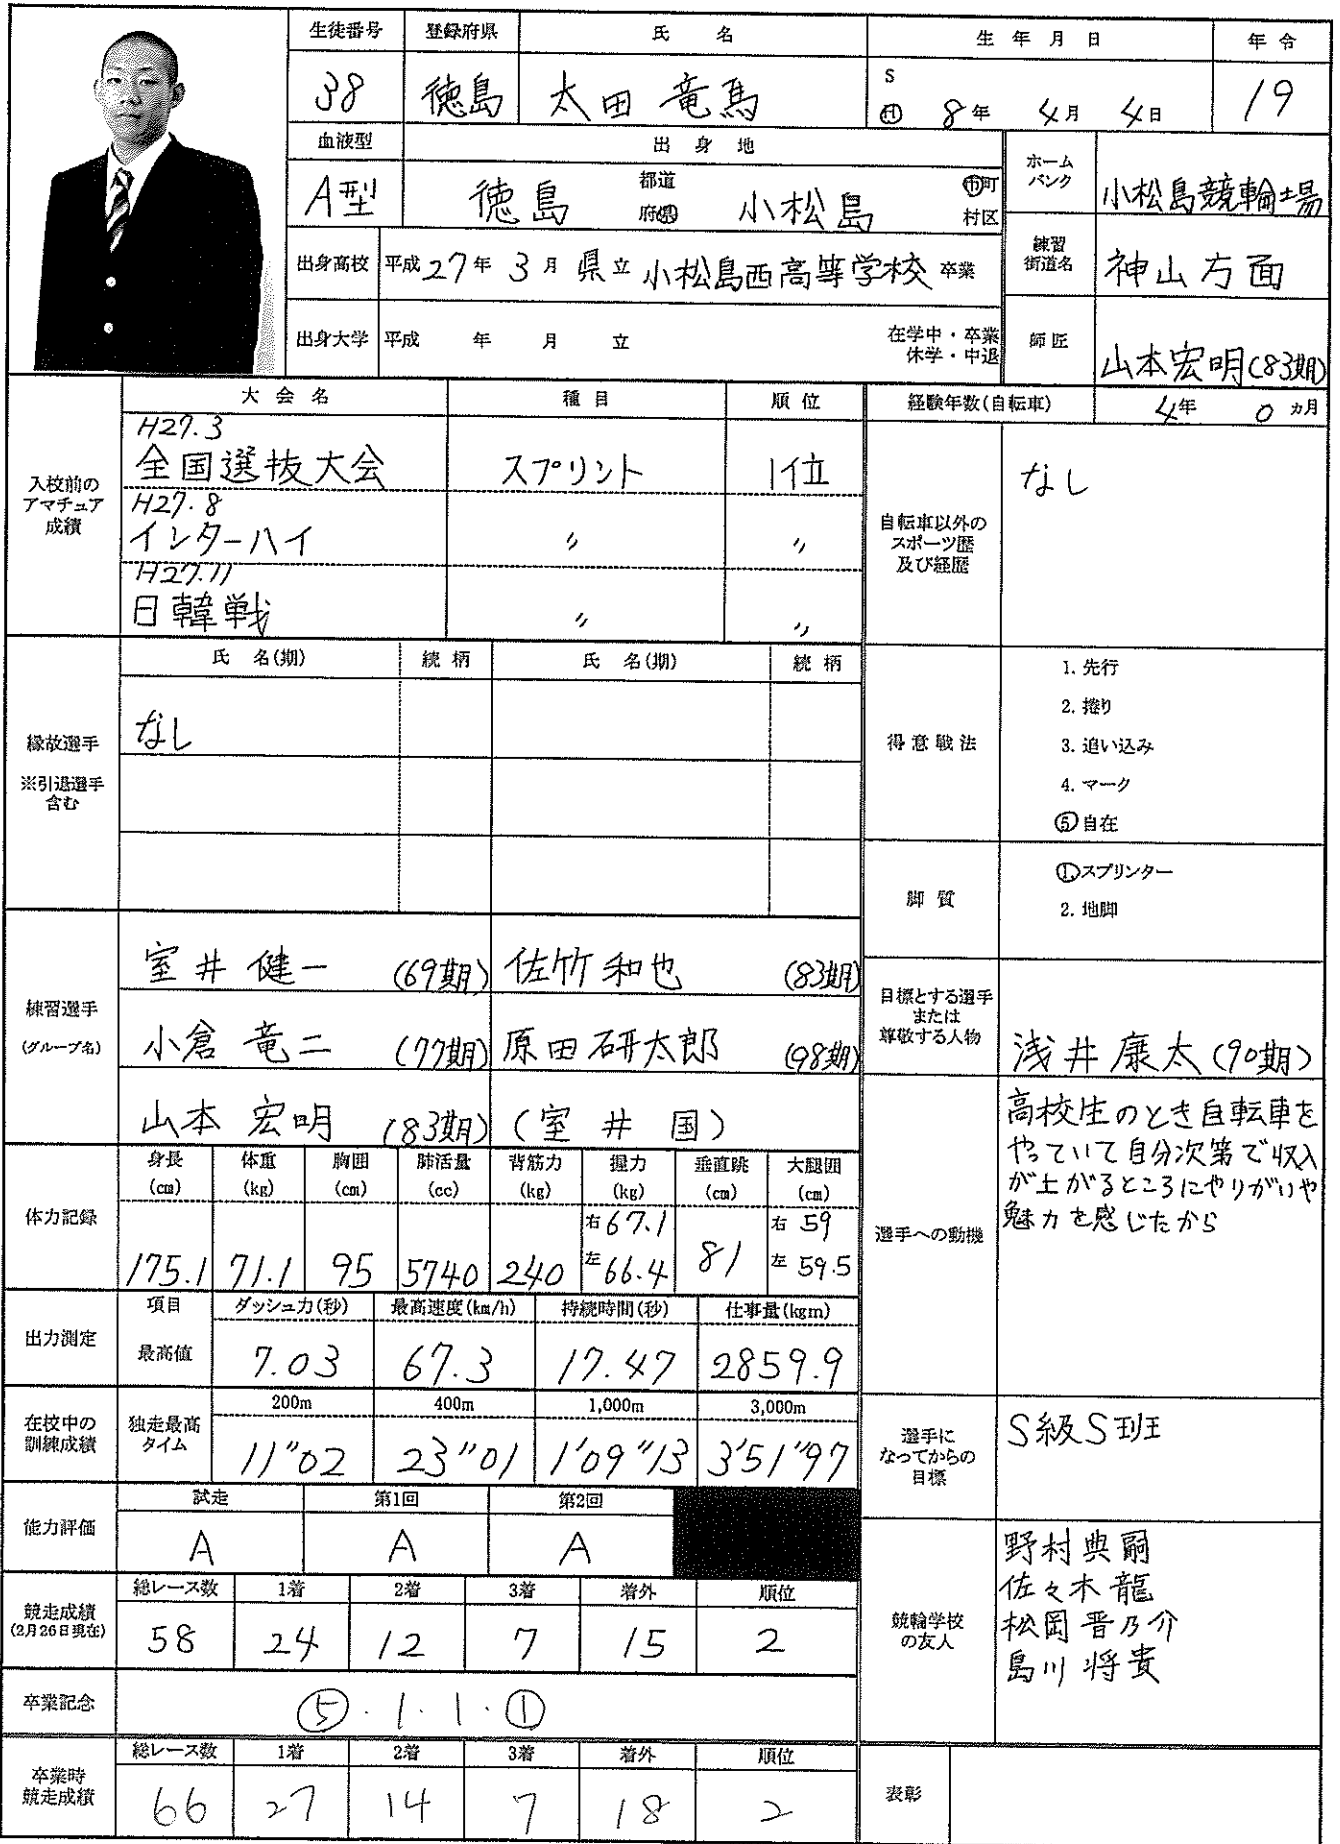 生徒番号 登録府県 氏 名 生 年 月 日 年 令
38 徳島 太田 竜馬 S Ⓗ 8年 4月 4日 19
血液型 出 身 地 ホームバンク 小松島競輪場
A型 徳島 都道府県 小松島 市町村区
練習街道名 神山方面
出身高校 平成27年 3月 県立 小松島西高等学校 卒業
出身大学 平成 年 月 立 在学中・卒業 休学・中退
師匠 山本宏明(83期)
入校前のアマチュア成績
大 会 名 種 目 順 位
H27.3
全国選抜大会 スプリント 1位
H27.8
インターハイ 〃 〃
H27.11
日韓戦 〃 〃
経験年数(自転車) 4年 0ヵ月
自転車以外のスポーツ歴及び経歴 なし
縁故選手
※引退選手含む
氏 名(期) 続 柄 氏 名(期) 続 柄
なし
得意戦法
1. 先行
2. 捲り
3. 追い込み
4. マーク
⑤自在
脚 質
①スプリンター
2. 地脚
練習選手
(グループ名)
室井 健一 (69期) 佐竹 和也 (83期)
小倉 竜二 (77期) 原田 研太郎 (98期)
山本 宏明 (83期) (室 井 国)
目標とする選手または尊敬する人物 浅井 康太(90期)
体力記録
身長(cm) 体重(kg) 胸囲(cm) 肺活量(cc) 背筋力(kg) 握力(kg) 垂直跳(cm) 大腿囲(cm)
175.1 71.1 95 5740 240 右67.1 左66.4 81 右59 左59.5
選手への動機
高校生のとき自転車を
やっていて自分次第で収入
が上がるところにやりがいや
魅力を感じたから
出力測定
項目 ダッシュ力(秒) 最高速度(km/h) 持続時間(秒) 仕事量(kgm)
最高値 7.03 67.3 17.47 2859.9
在校中の訓練成績
独走最高タイム 200m 400m 1,000m 3,000m
11"02 23"01 1'09"13 3'51"97
選手になってからの目標 S級S班
能力評価
試走 第1回 第2回
A A A
競走成績
(2月26日現在)
総レース数 1着 2着 3着 着外 順位
58 24 12 7 15 2
競輪学校の友人
野村 典嗣
佐々木 龍
松岡 晋乃介
島川 将貴
卒業記念 ⑤・1・1・①
卒業時競走成績
総レース数 1着 2着 3着 着外 順位
66 27 14 7 18 2
表彰